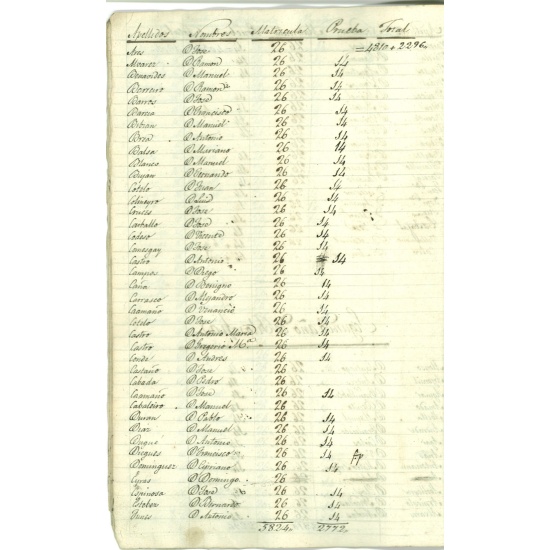 Apellidos Nombres Matrícula Prueba Total
Ares D. José 26 = 4810 + 2296
Alvarez D. Ramon 26 54
Benavides D. Manuel 26 54
Borreiro D. Ramon 26 54
Barros D. José 26 54
Barcia D. Francisco 26 54
Bibian D. Manuel 26 54
Bra D. Antonio 26 54
Balsa D. Mariano 26 54
Blanco D. Manuel 26 54
Bujan D. Fernando 26 54
Cotelo D. Juan 26 54
Colmeyro D. Luis 26 54
Couces D. José 26 54
Carballo D. José 26 54
Codeso D. Vicente 26 54
D. José 26 54
Castro D. Antonio 26 54
Campos D. Diego 26 54
Caña D. Benigno 26 54
Carrasco D. Alejandro 26 54
Caamaño D. Venancio 26 54
Cotelo D. José 26 54
Castro D. Antonio Maria 26 54
Castro D. Gregorio M.ª 26 54
Conde D. Andres 26 54
Castaño D. José 26
Cabada D. Pedro 26
Caamaño D. José 26 54
Cabaleiro D. Manuel 26
Duran D. Pablo 26 54
Diaz D. Manuel 26 54
Duque D. Antonio 26 54
Diegues D. Francisco 26 54
Dominguez D. Cipriano 26 54
Eyras D. Domingo 26
Espinosa D. José 26 54
Esteber D. Bernardo 26 54
D. Antonio 26 54
5824 2772